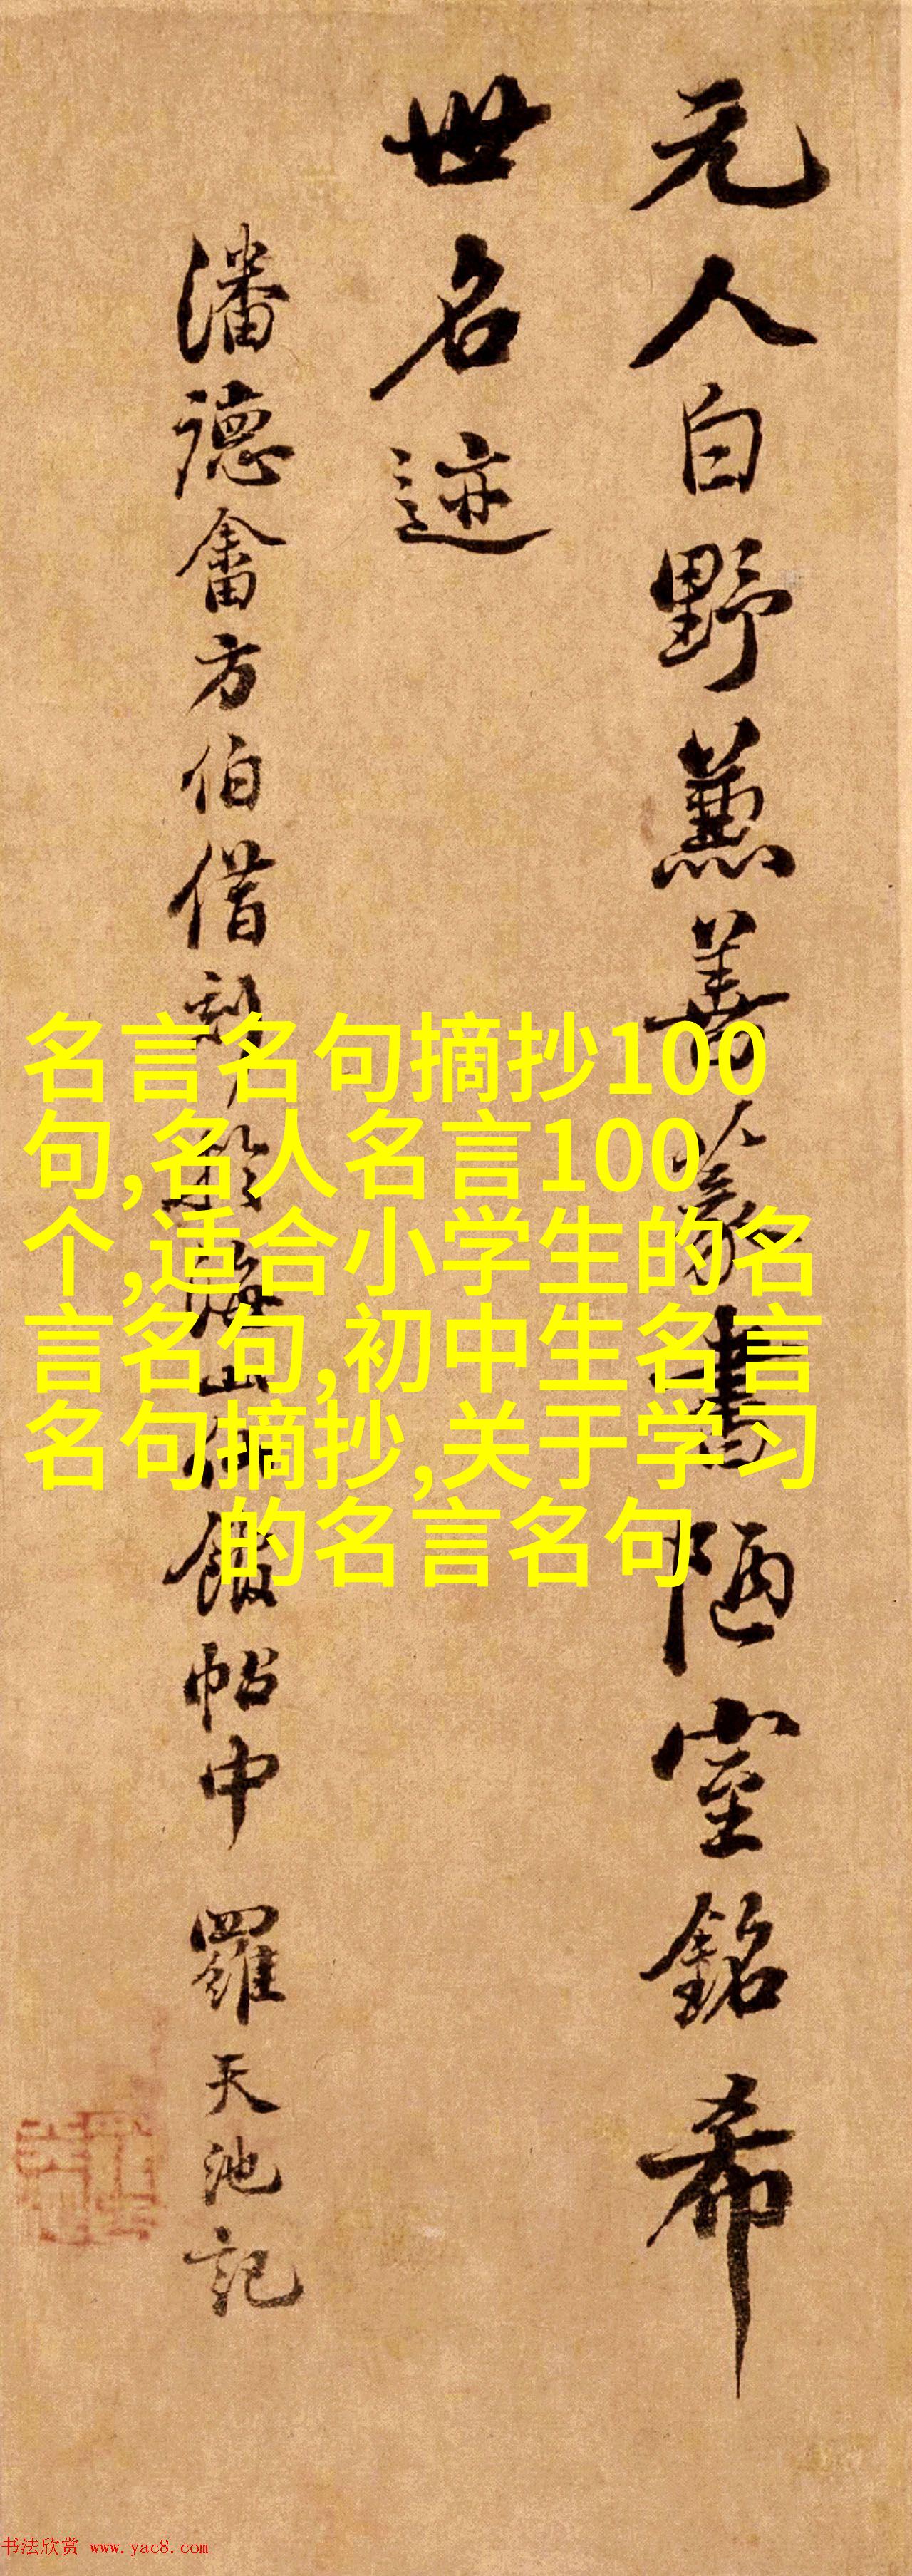 元人白野兼善篆書陋室銘希
世名迹
潘德畬方伯借刻於海山仙館帖中 羅天池記
名言名句摘抄100
句,名人名言100
个,适合小学生的名
言名句,初中生名言
名句摘抄,关于学习
的名言名句
书法欣赏 www.yac8.com